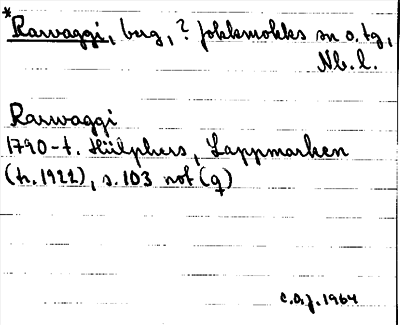 *Rarvaggi, berg, ? Jokkmokks sn o. tg,
Nb. l.
Rarvaggi
1790-t. Hülphers, Lappmarken
(tr. 1922), s. 103 not (q)
c.o.j. 1964